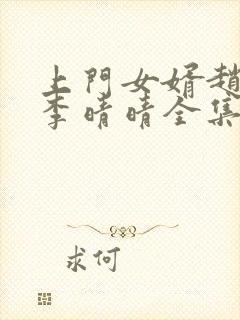 上門女婿趙
李晴晴全集
求何